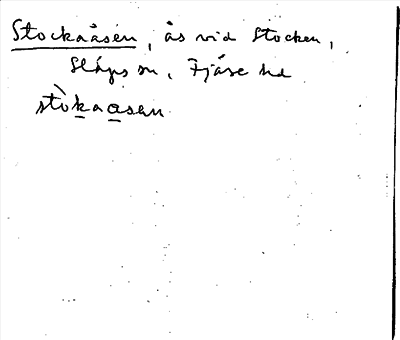 Stockaåsen, ås vid Stocken,
Släps sn, Fjäre hd
stòkaasen